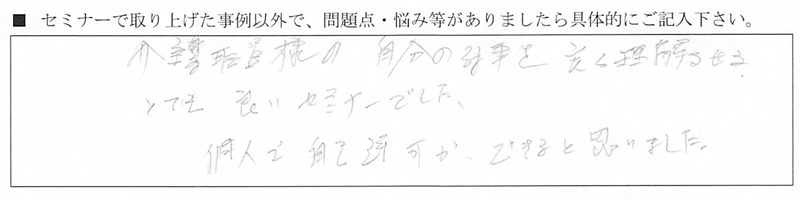 ■ セミナーで取り上げた事例以外で、問題点・悩み等がありましたら具体的にご記入下さい。
介護職員様の自分の仕事を良く理解させる
とても良いセミナーでした、
個人で自己評可が、できると思いました。